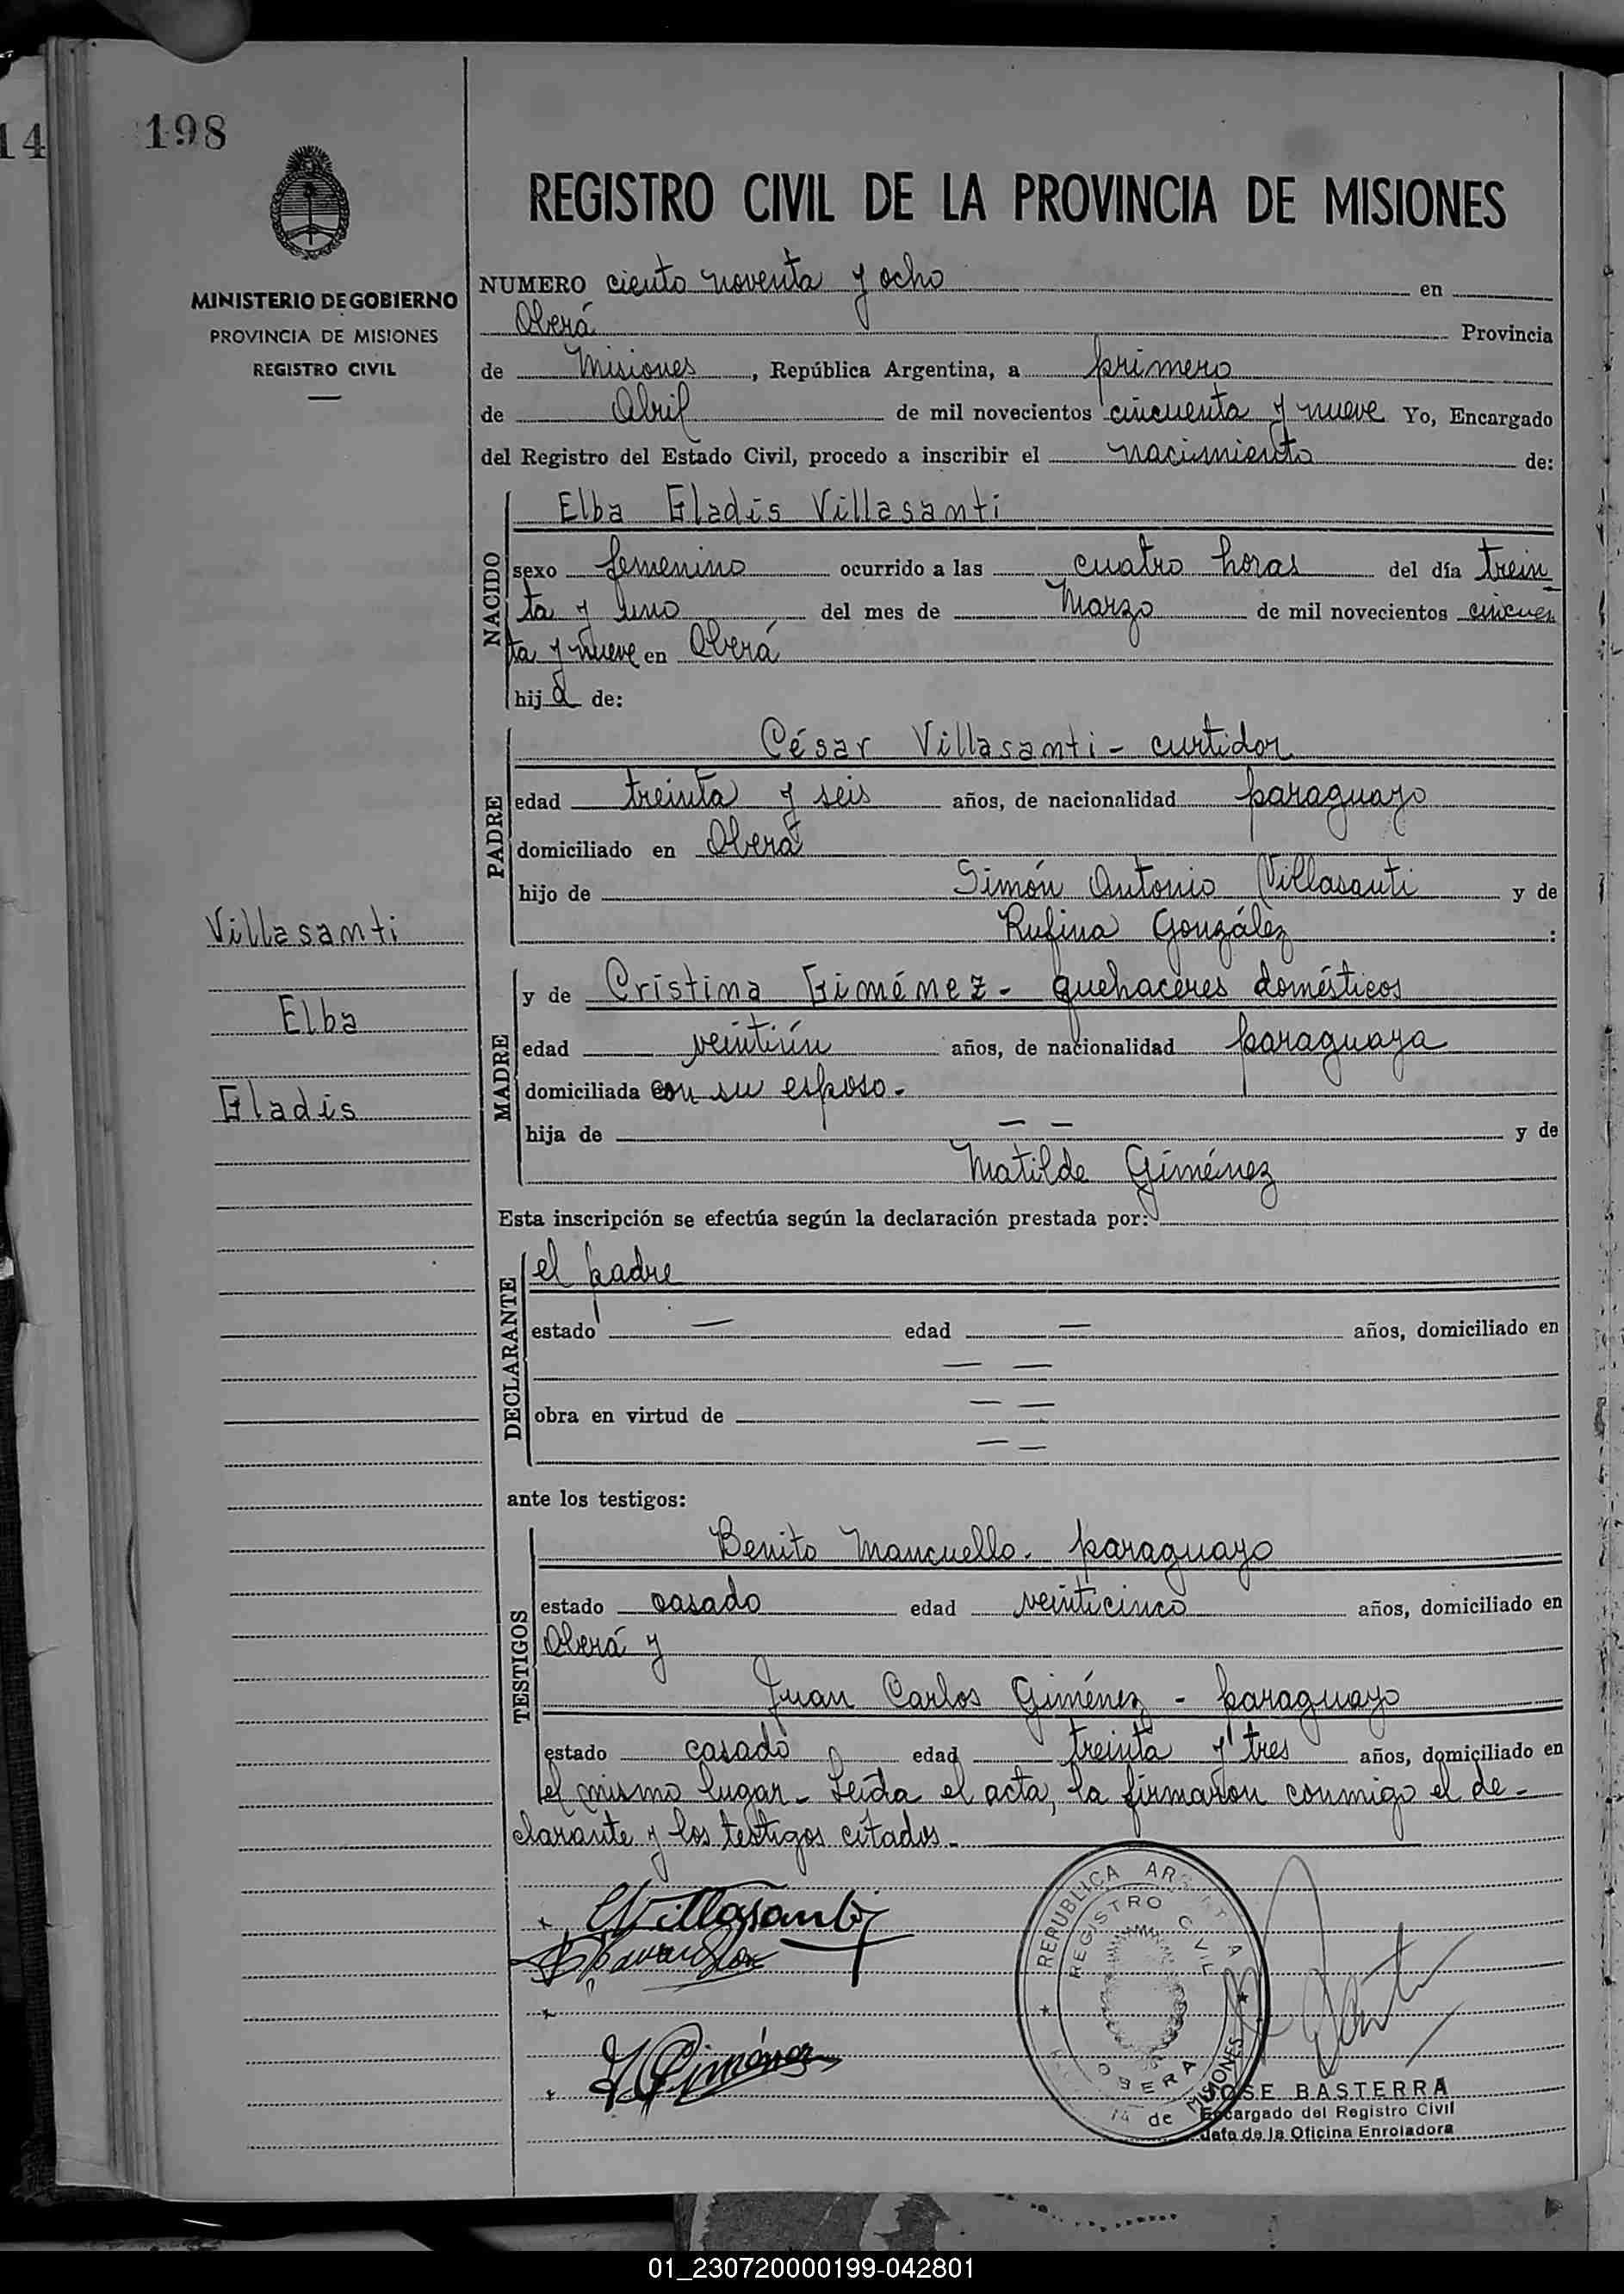 14
198
REGISTRO CIVIL DE LA PROVINCIA DE MISIONES
MINISTERIO DE GOBIERNO
PROVINCIA DE MISIONES
REGISTRO CIVIL
NUMERO ciento noventa y ocho en
Oberá Provincia
de Misiones, República Argentina, a primero
de Abril de mil novecientos cincuenta y nueve Yo, Encargado
del Registro del Estado Civil, procedo a inscribir el nacimiento de:
NACIDO
Elba Gladis Villasanti
sexo femenino ocurrido a las cuatro horas del día trein
ta y uno del mes de Marzo de mil novecientos cincuen
ta y nueve en Oberá
hija de:
PADRE
César Villasanti - curtidor
edad treinta y seis años, de nacionalidad paraguayo
domiciliado en Oberá
hijo de Simón Antonio Villasanti y de
Rufina González :
Villasanti
Elba
Gladis
MADRE
y de Cristina Giménez - quehaceres domésticos
edad veintiún años, de nacionalidad paraguaya
domiciliada con su esposo -
hija de — — y de
Matilde Giménez
Esta inscripción se efectúa según la declaración prestada por:
DECLARANTE
el padre
estado — edad — años, domiciliado en
— —
obra en virtud de — —
— —
ante los testigos:
TESTIGOS
Benito Mancuello - paraguayo
estado casado edad veinticinco años, domiciliado en
Oberá y
Juan Carlos Giménez - paraguayo
estado casado edad treinta y tres años, domiciliado en
el mismo lugar - Leída el acta, la firmaron conmigo el de-
clarante y los testigos citados -
Villasanti
Giménez
REPUBLICA ARGENTINA
REGISTRO CIVIL
OBERA
MISIONES
JOSE BASTERRA
Encargado del Registro Civil
Jefe de la Oficina Enroladora
01_230720000199-042801